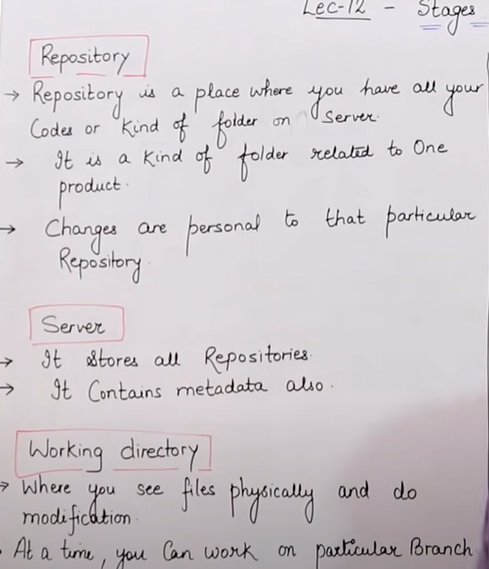 Lec-12 - Stages
Repository
→ Repository is a place where you have all your
Codes or Kind of folder on Server.
→ It is a Kind of folder related to One
product.
→ Changes are personal to that particular
Repository.
Server
→ It Stores all Repositories.
→ It Contains metadata also.
Working directory
→ Where you see files physically and do
modification.
At a time, you Can work on particular Branch